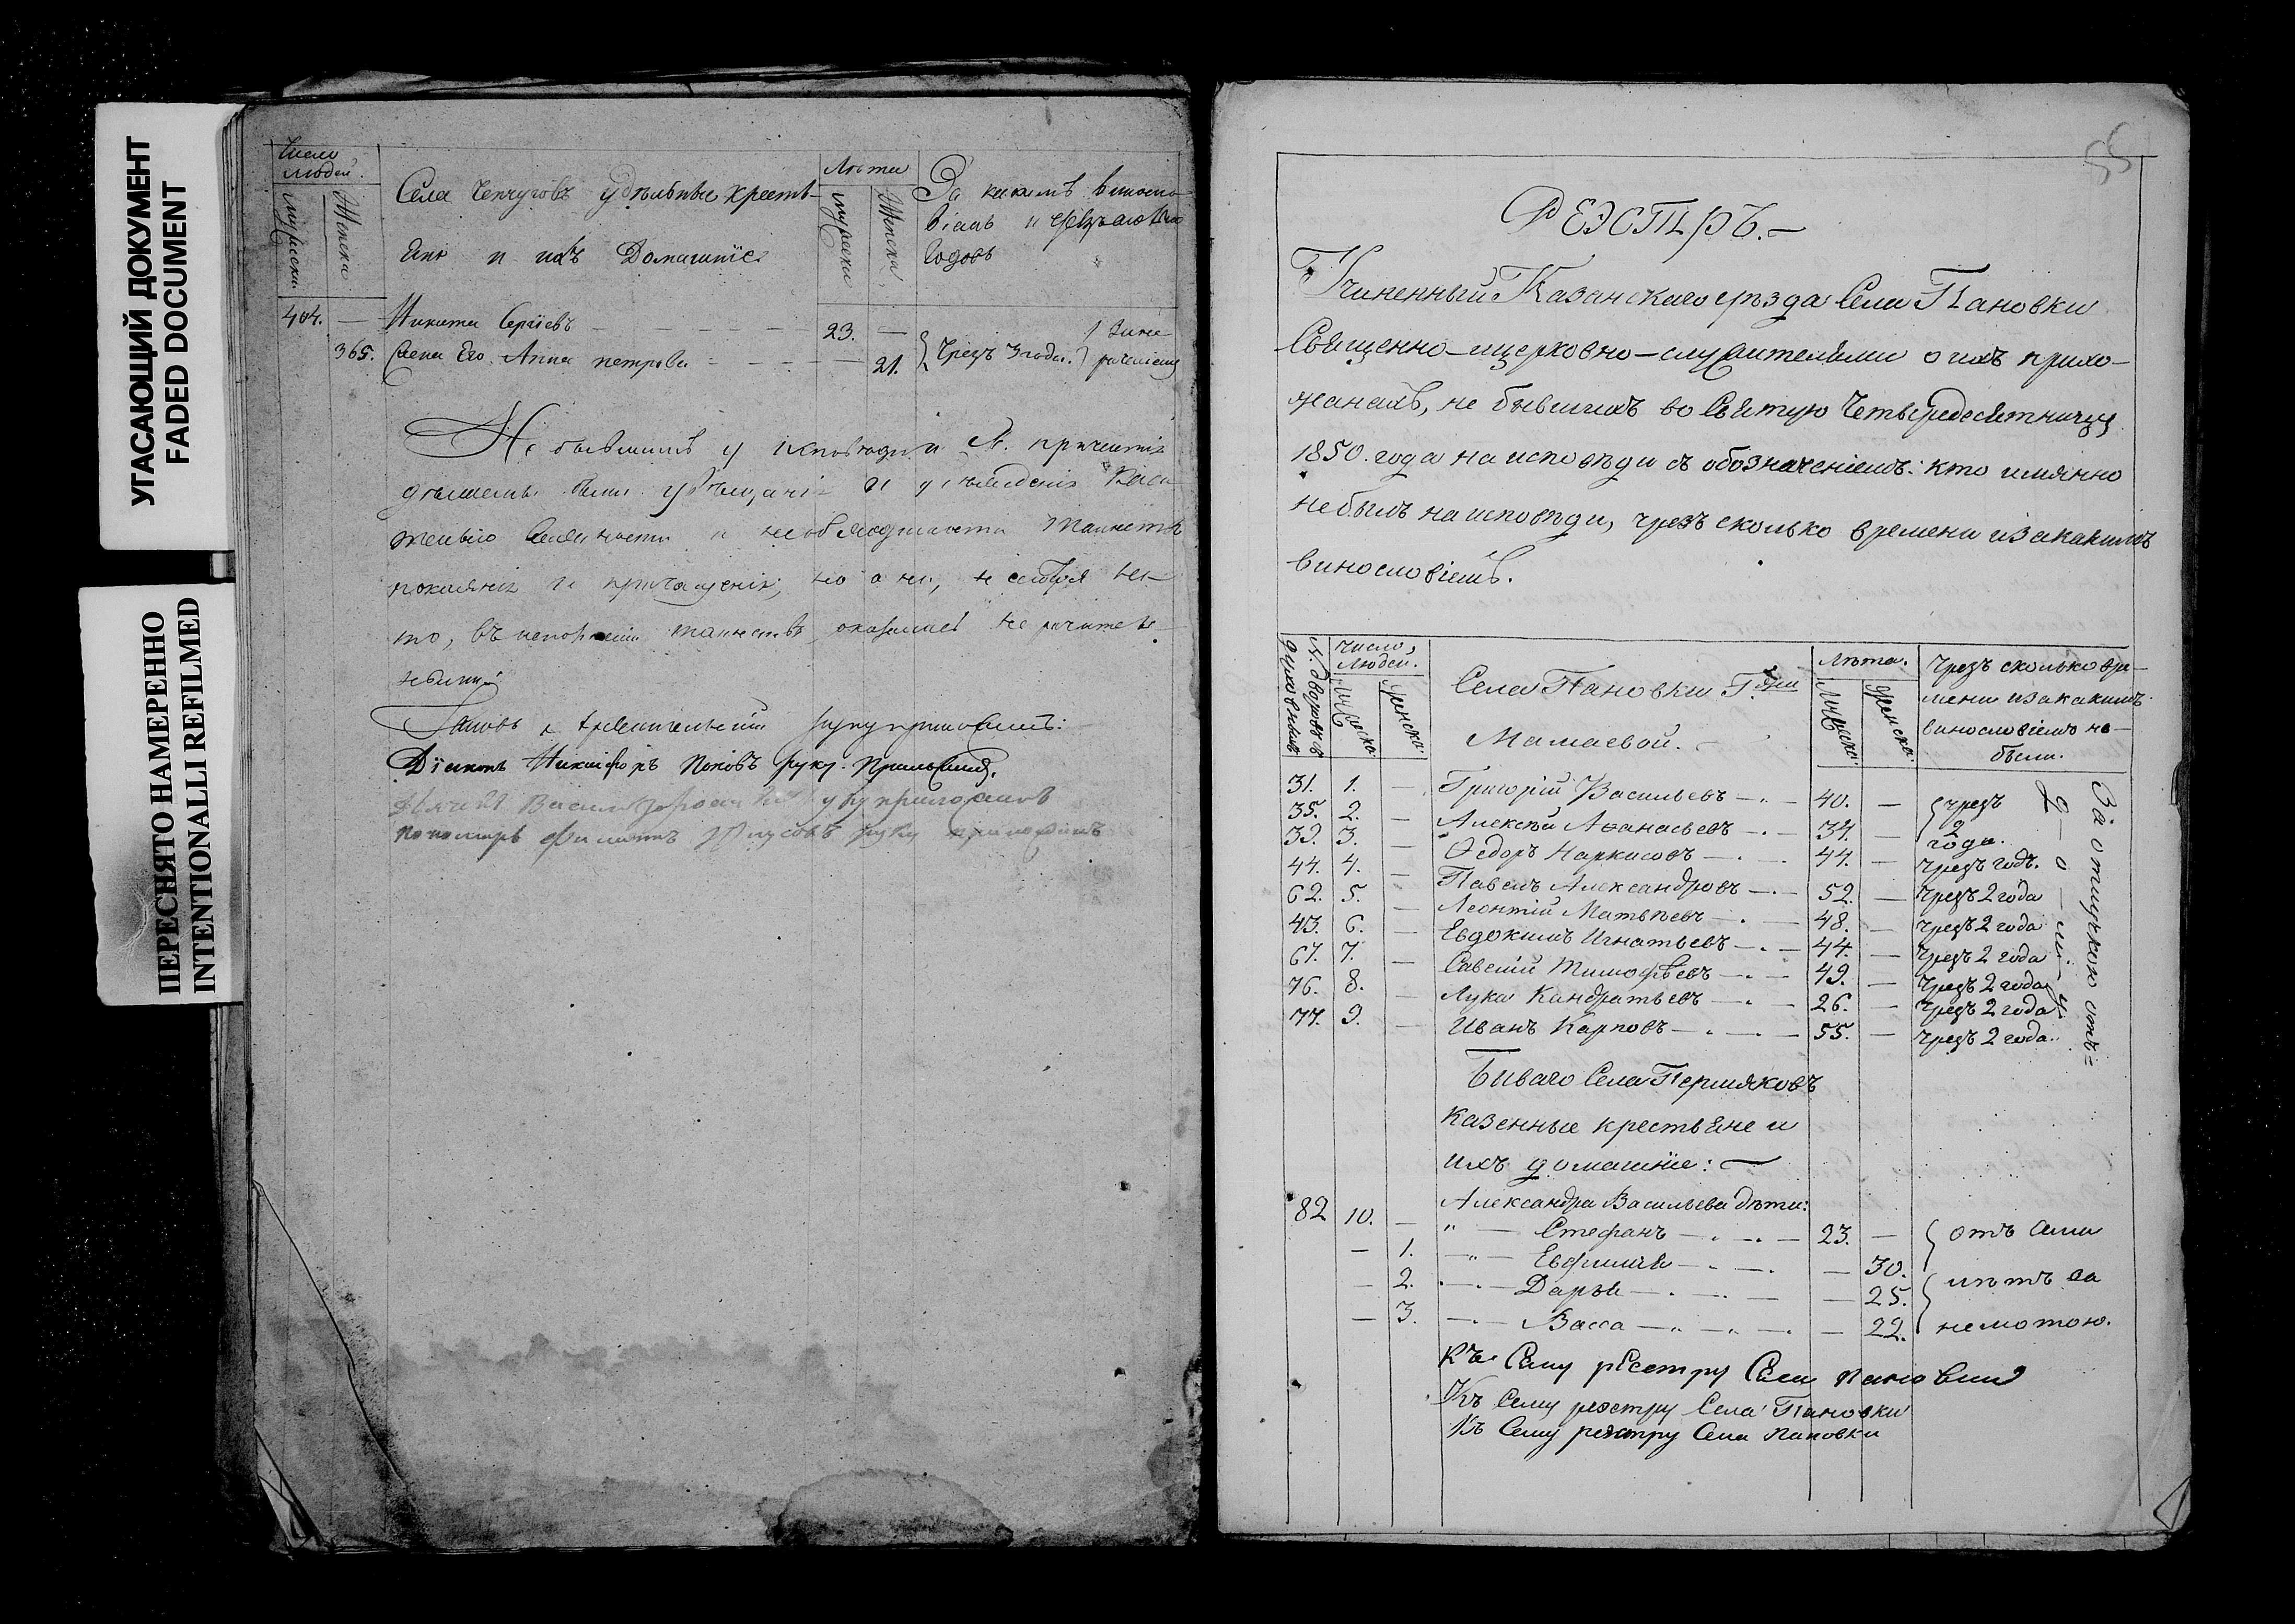 УГАСАЮЩИЙ ДОКУМЕНТ
FADED DOCUMENT
ПЕРЕСНЯТО НАМЕРЕННО
INTENTIONALLI REFILMED
Число
людей.
мужеска.
Женска
Села Чепчуговъ удѣльные кресть-
яне и ихъ Домашніе
Лѣта
мужеска
Женска
За какимъ виносло
віемъ и чрезъ сколько
годовъ
404. — Никита Сергіевъ — — — — 23. —
365. Жена Его Анна петрова — — — 21. Чрезъ 3 года.
Не бывшимъ у исповѣди и Св. причастія
покаянія и причащенія, но они, не смотря на
то, въ исполненіи таинствъ оказались не
руку приложилъ:
Діаконъ Никифоръ Поповъ руку приложилъ.
Василій руку приложилъ
Пономарь Филиппъ руку приложилъ
55
РЕЭСТРЪ.—
Учиненный Казанскаго уѣзда Села Пановки
Священно-ицерковно-служителями о ихъ прихо-
жанахъ, не бывшихъ во Святую Четыредесятницу
1850. года на исповѣди съ обозначеніемъ: кто имянно
небылъ на исповѣди, чрезъ сколько времени изакакимъ
винословіемъ.
№. дворовъ въ
духовныхъ
Число,
людей.
Мужеска.
Женска.
Села Пановки Г.жи
Мамаевой. —
Лѣта.
Мужеска.
Женска.
Чрезъ сколько вре-
мени изакакимъ
винословіемъ не-
были.
31. 1. — Григорій Васильевъ — 40. — чрезъ
35. 2. — Алексѣй Аѳанасьевъ — 34. — 2 года.
39. 3. — Ѳедоръ Наркисовъ — 44. — чрезъ годъ.
44. 4. — Павелъ Александровъ — 52. — чрезъ 2 года
62. 5. — Леонтій Матвѣевъ — 48. — чрезъ 2 года
43. 6. — Евдокимъ Игнатьевъ — 44. — чрезъ 2 года
67. 7. — Савелій Тимофѣевъ — 49. — чрезъ 2 года
76. 8. — Лука Кандратьевъ — 26. — чрезъ 2 года
77. 9. — Иванъ Карповъ — 55. — чрезъ 2 года.
За отлучкою отъ=
до-му.
Бываго Села Пермяковъ
казенные крестьяне и
ихъ домашніе: —
Александра Васильева дѣти:
82 10. — " — Стефанъ — 23. — отъ семи
— 1. — " — Евфимія — — 30.
— 2. — Дарья — — 25. лѣтъ за
— 3. — Васса — — 22. немотою.
Къ Сему рѣестру Села Пановки
Къ Сему реэстру Села Пановки
Къ Сему реэстру Села Пановки